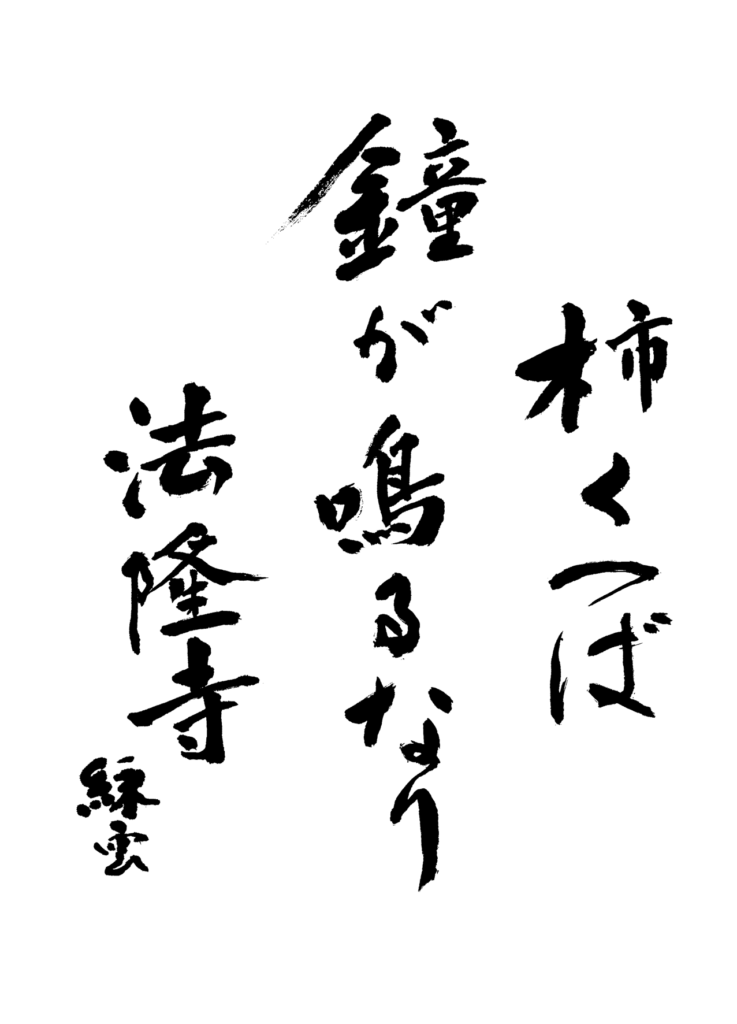 柿くつば
鐘が鳴るなり
法隆寺